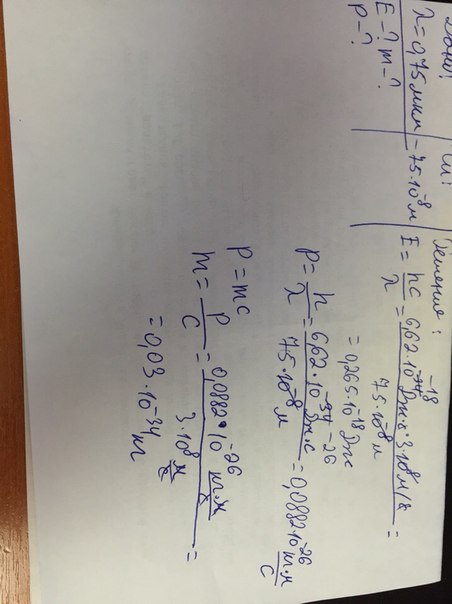 Дано:
λ = 0,75 мкм
E - ? m - ?
P - ?
СИ:
= 75·10⁻⁸ м
Решение:
E = hc/λ = 6,62·10⁻³⁴ Дж·с·3·10⁸ м/с / 75·10⁻⁸ м =
= 0,265·10⁻¹⁸ Дж
P = h/λ = 6,62·10⁻³⁴ Дж·с / 75·10⁻⁸ м = 0,0882·10⁻²⁶ кг·м/с
P = mc
m = P/C = 0,0882·10⁻²⁶ кг·м/с / 3·10⁸ м/с =
= 0,03·10⁻³⁴ кг